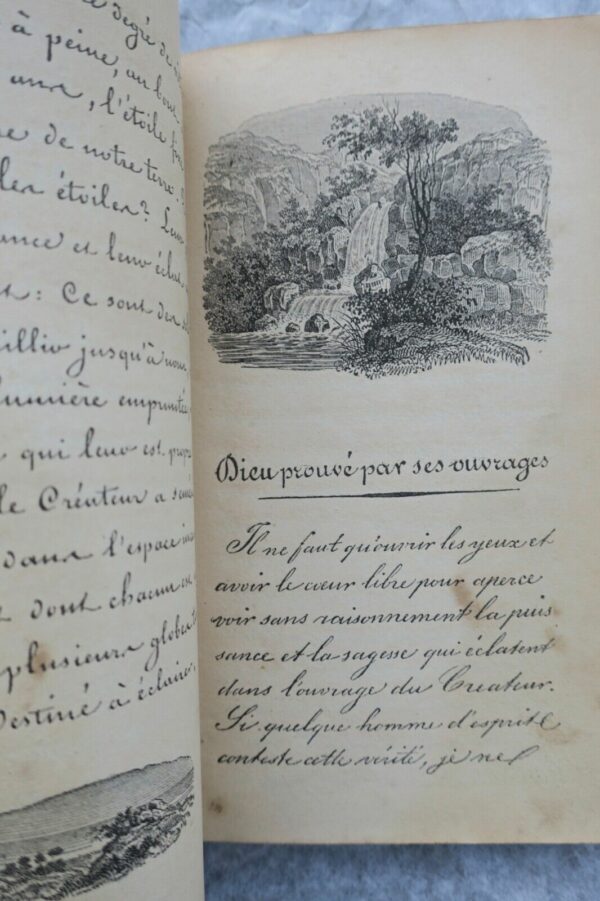 degré de
à peine, au bout
ans, l'étoile
de notre terre.
étoiles? Leur
et leur éclat
: Ce sont des
jusqu'à nous
lumière empruntée
qui leur est propre
le Créateur a semé
dans l'espace
dont chacun est
plusieurs globes
Destiné à éclairer,
Dieu prouvé par ses ouvrages
Il ne faut qu'ouvrir les yeux et
avoir le cœur libre pour aperce
voir sans raisonnement la puis
sance et la sagesse qui éclatent
dans l'ouvrage du Createur.
Si quelque homme d'esprit
conteste cette vérité, je ne